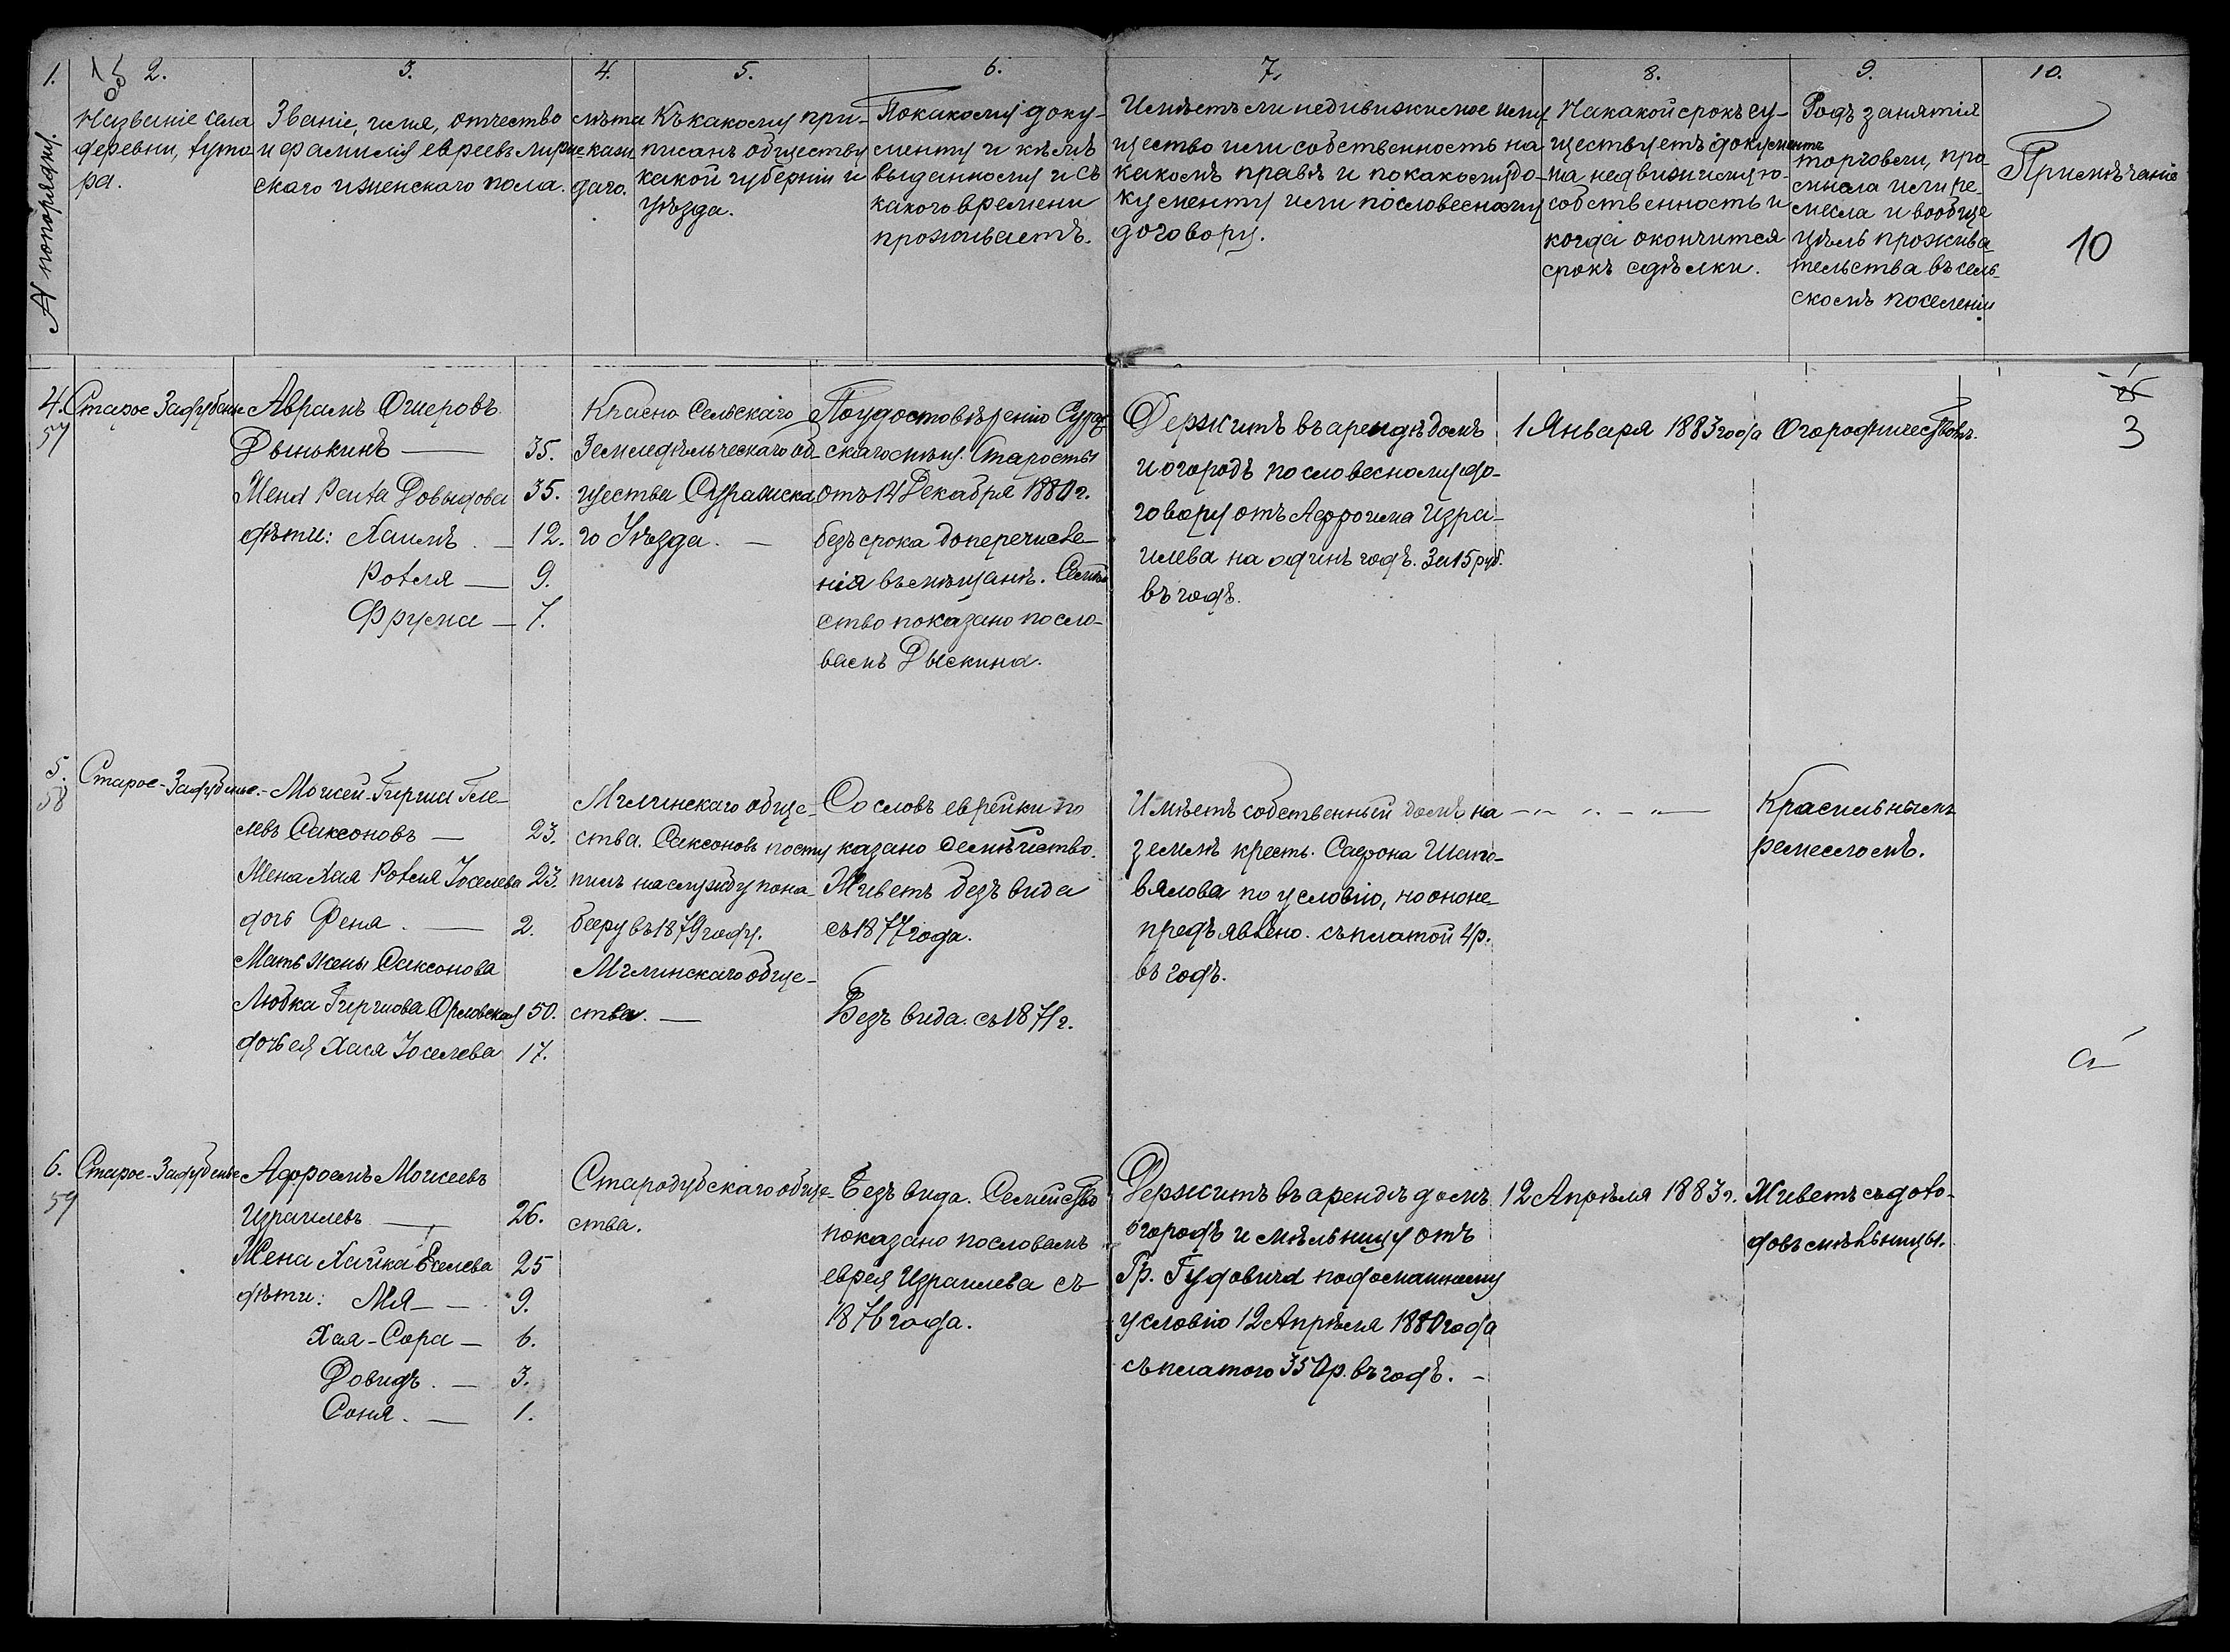 1.
2.
3.
4.
5.
6.
7.
8.
9.
10.
№ попорядку.
Названіе села
деревни, хуто-
ра.
Званіе, имя, отчество
и фамилія евреевъ муж-
скаго и женскаго пола.
лѣта
кажи
даго.
Къ какому при-
писанъ обществу
какой губерніи и
уѣзда.
По какому доку-
менту и кѣмъ
выданному и съ
какого времени
проживаетъ.
Имѣетъ ли недвижимое иму-
щество или собственность на
какомъ правѣ и по какому до-
кументу или по словесному
договору.
На какой срокъ су-
ществуетъ документъ
на недвижимую
собственность и
когда окончится
срокъ сдѣлки.
Родъ занятія
торговли, про-
мысла или ре-
месла и вообще
цѣль прожива-
тельства въ сель-
скомъ поселеніи
Примѣчаніе
10
4.
57
Старое Задубенье
Аврамъ Ошеровъ
Дынькинъ — 35.
Жена Рейха Довыдова 35.
дѣти: Хаимъ. — 12.
Рохля — 9.
Фрума — 7.
Красно Сельскаго
Земледѣльческаго об-
щества Суражска
го Уѣзда. —
По удостовѣренію Сураж
скаго мѣщ. Старосты
отъ 14 Декабря 1880 г.
безъ срока до перечисле-
нія въ мѣщанѣ. Семѣй
ство показано по сло-
вамъ Дыскина.
Держитъ въ арендѣ домъ
и огородъ по словесному до-
говору отъ Афроима Изра-
илева на одинъ годъ. За 15 руб.
въ годъ.
1 Января 1883 года
Огородничествомъ.
3
5.
58
Старое-Задубенье.
Мошей-Гирша Геле-
левъ Саксоновъ — 23.
Жена Хая Рохля Іоселева 23.
дочь Феня. — 2.
Мать жены Саксонова
Любка Гиршова Орловская 50.
дочь ея Хася Іоселева 17.
Мглинскаго обще-
ства. Саксоновъ посту
пилъ на службу по на-
бору въ 1879 году.
Мглинскаго обще-
ства. —
Со словъ еврейки по
казано семѣйство.
Живетъ безъ вида
съ 1877 года.
Безъ вида. съ 1871 г.
Имѣетъ собственный домъ на
землѣ кресть. Сафона Шапо-
валова по условію, но оно не-
предъявлено. съ платой 4 р.
въ годъ.
— " — " — " —
Красильнымъ
ремесломъ.
6.
59
Старое-Задубенье
Афроемъ Моисеевъ
Израилевъ — 26.
Жена Хайка Еселева 25
дѣти: Мя — 9.
Хая-Сора — 6.
Довидъ. — 3.
Соня. — 1.
Стародубскаго обще-
ства.
Безъ вида. Семейство
показано по словамъ
еврея Израилева съ
1876 года.
Держитъ въ арендѣ домъ
огородъ и мѣльницу отъ
Гр. Гудовича по домашнему
условію 12 Апрѣля 1880 года
съ платого 350 р. въ годъ. —
12 Апрѣля 1883 г.
Живетъ съ дохо-
довъ мѣльницы.